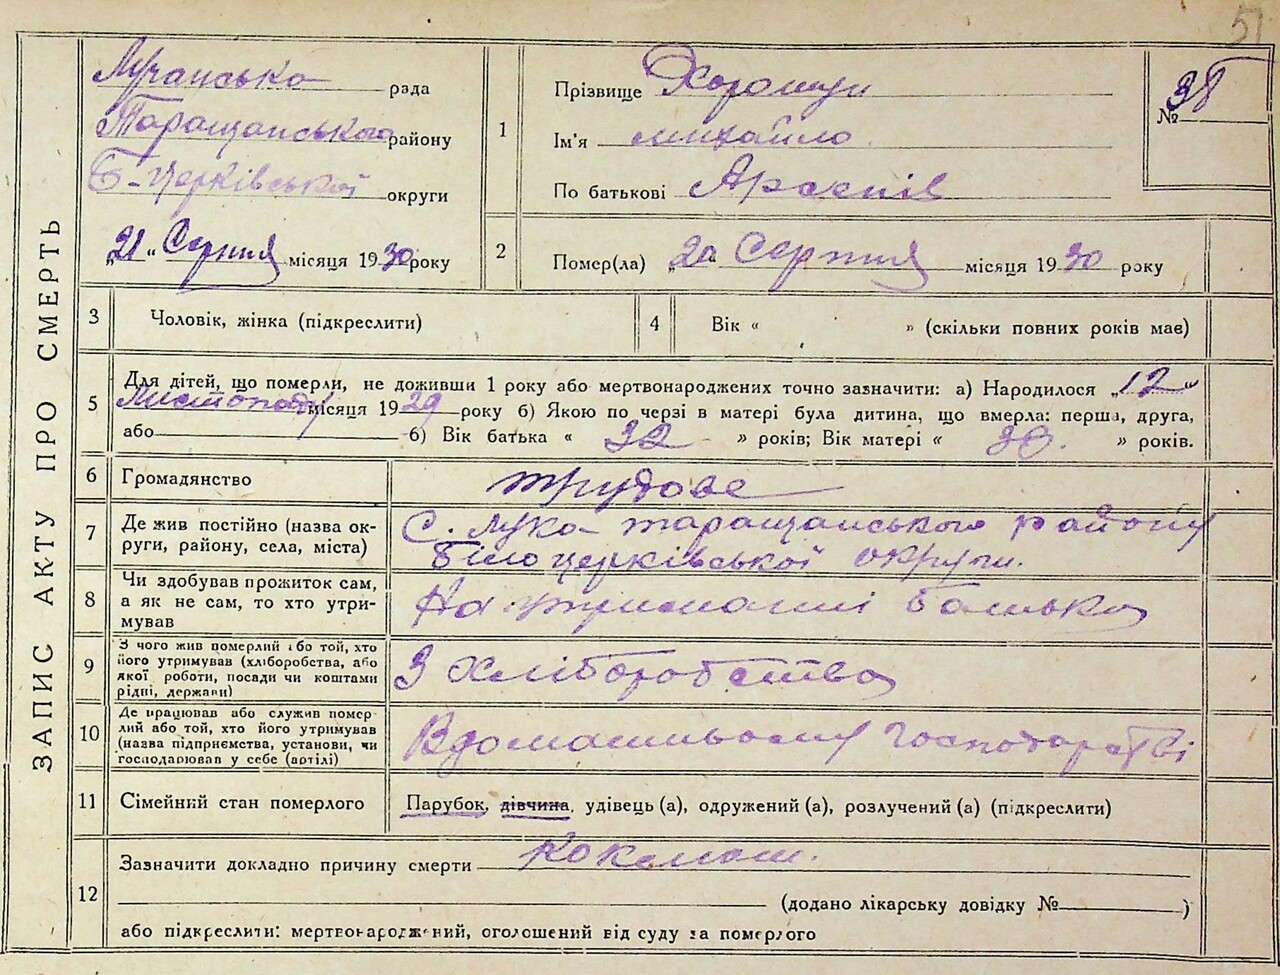 51
ЗАПИС АКТУ ПРО СМЕРТЬ
Лучанська рада
Таращанського району
Б-Церківської округи
„21“ Серпня місяця 1930 року
1
Прізвище
Ім'я михайло
По батькові
№ 38
2
Помер(ла) „20“ Серпня місяця 1930 року
3 Чоловік, жінка (підкреслити)
4 Вік « » (скільки повних років має)
5 Для дітей, що померли, не доживши 1 року або мертвонароджених точно зазначити: а) Народилося „12“
Листопаду місяця 1929 року б) Якою по черзі в матері була дитина, що вмерла: перша, друга,
або б) Вік батька « 32 » років; Вік матері « 30 » років.
6 Громадянство трудове
7 Де жив постійно (назва округи, району, села, міста)
С. Лука таращанського району
Білоцерківської округи.
8 Чи здобував прожиток сам,
а як не сам, то хто утримував
На утриманні батька
9 З чого жив померлий або той, хто
його утримував (хліборобства, або
якої роботи, посади чи коштами
рідні, держави)
З хліборобства
10 Де працював або служив померлий або той, хто його утримував
(назва підприємства, установи, чи
господарював у себе (артілі)
В домашньому господарстві
11 Сімейний стан померлого Парубок, дівчина, удівець (а), одружений (а), розлучений (а) (підкреслити)
12 Зазначити докладно причину смерти Коклюш.
(додано лікарську довідку № )
або підкреслити: мертвонароджений, оголошений від суду за померлого